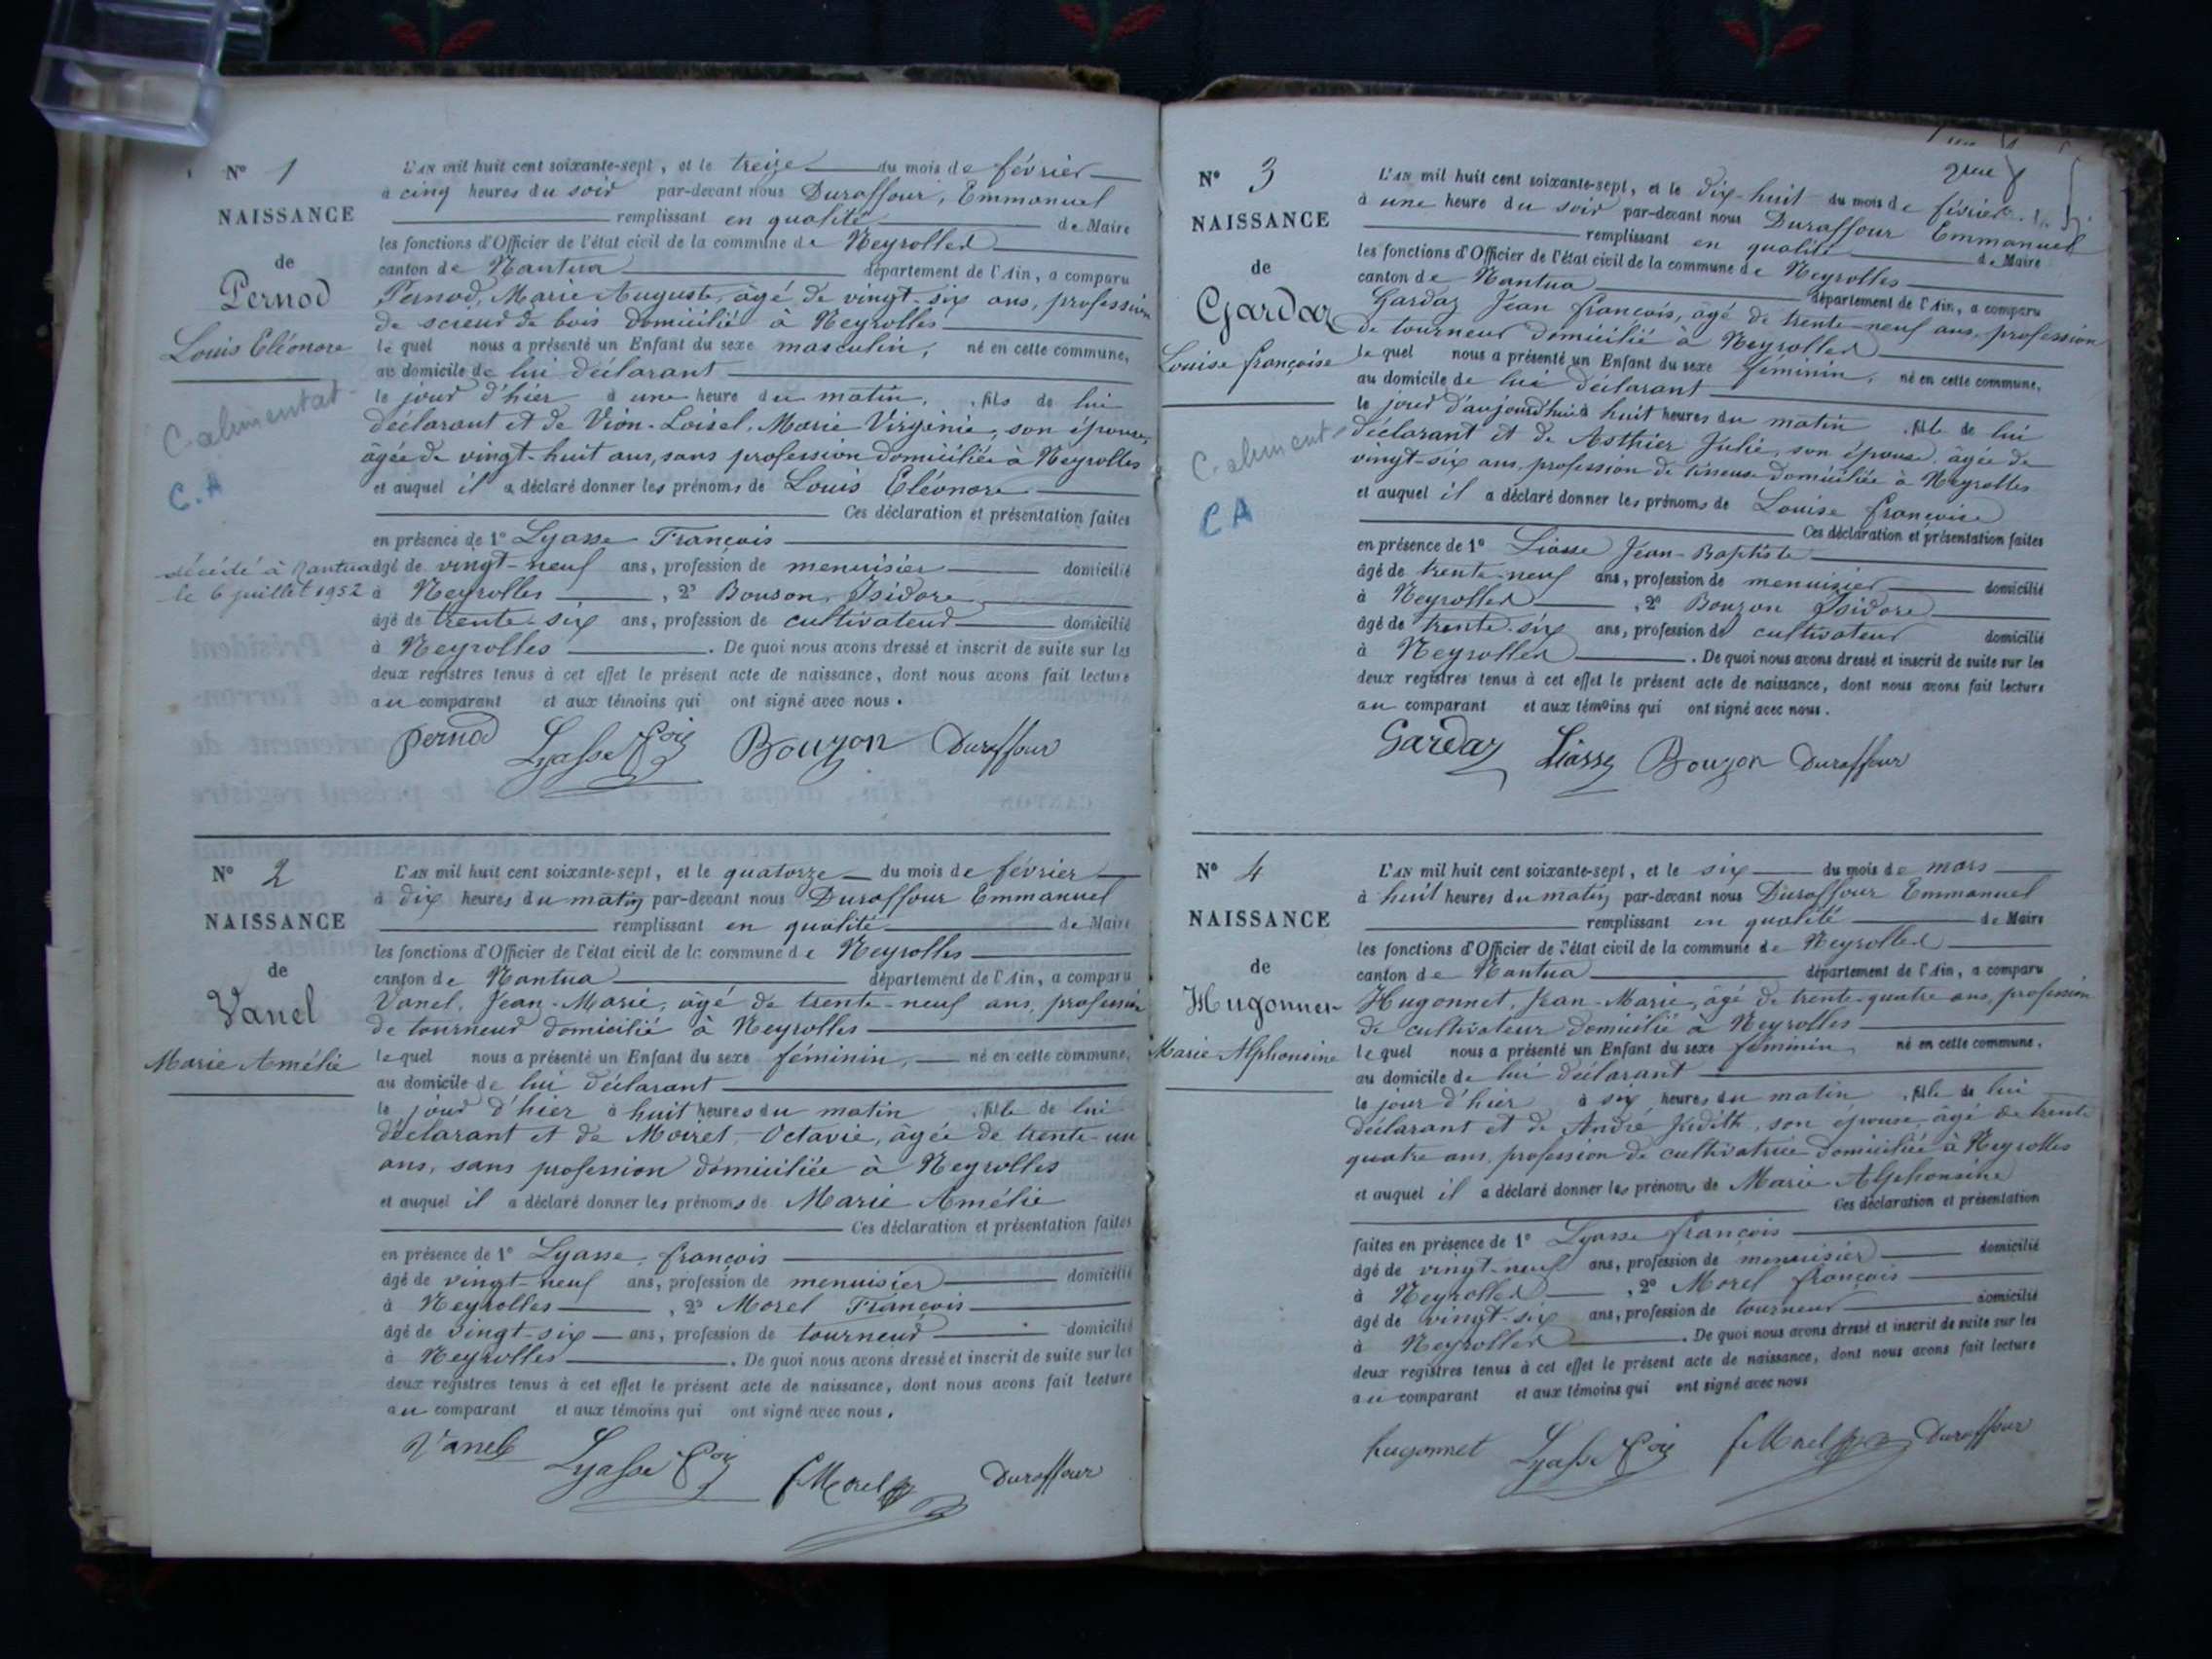 N° 1
NAISSANCE
de
Pernod
Louis Eléonore
C. alimentat
C. A
décédé à Nantua
le 6 juillet 1952
L'AN mil huit cent soixante-sept, et le treize du mois de février
à cinq heures du soir par-devant nous Duraffour, Emmanuel
remplissant en qualité de Maire
les fonctions d'Officier de l'état civil de la commune de Neyrolles
canton de Nantua département de l'Ain, a comparu
Pernod, Marie Auguste, âgé de vingt-six ans, profession
de scieur de bois domicilié à Neyrolles
lequel nous a présenté un Enfant du sexe masculin, né en cette commune,
au domicile de lui déclarant
le jour d'hier à une heure du matin, fils de lui
déclarant et de Vion-Loisel, Marie Virginie, son épouse,
âgée de vingt-huit ans, sans profession domiciliée à Neyrolles
et auquel il a déclaré donner les prénoms de Louis Eléonore
Ces déclaration et présentation faites
en présence de 1° Lyasse François
âgé de vingt-neuf ans, profession de menuisier domicilié
à Neyrolles, 2° Bouzon, Isidore
âgé de trente-six ans, profession de cultivateur domicilié
à Neyrolles. De quoi nous avons dressé et inscrit de suite sur les
deux registres tenus à cet effet le présent acte de naissance, dont nous avons fait lecture
au comparant et aux témoins qui ont signé avec nous.
Pernod Lyasse fois Bouzon Duraffour
N° 2
NAISSANCE
de
Vanel
Marie Amélie
L'AN mil huit cent soixante-sept, et le quatorze du mois de février
à dix heures du matin par-devant nous Duraffour Emmanuel
remplissant en qualité de Maire
les fonctions d'Officier de l'état civil de la commune de Neyrolles
canton de Nantua département de l'Ain, a comparu
Vanel, Jean-Marie, âgé de trente-neuf ans, profession
de tourneur domicilié à Neyrolles
lequel nous a présenté un Enfant du sexe féminin, né en cette commune,
au domicile de lui déclarant
le jour d'hier à huit heures du matin, fille de lui
déclarant et de Moiret, Octavie, âgée de trente-un
ans, sans profession domiciliée à Neyrolles
et auquel il a déclaré donner les prénoms de Marie Amélie
Ces déclaration et présentation faites
en présence de 1° Lyasse, françois
âgé de vingt-neuf ans, profession de menuisier domicilié
à Neyrolles, 2° Morel François
âgé de vingt-six ans, profession de tourneur domicilié
à Neyrolles. De quoi nous avons dressé et inscrit de suite sur les
deux registres tenus à cet effet le présent acte de naissance, dont nous avons fait lecture
au comparant et aux témoins qui ont signé avec nous.
Vanel Lyasse fois f Morel Duraffour
N° 3
NAISSANCE
de
Gardaz
Louise françoise
C. aliment
CA
L'AN mil huit cent soixante-sept, et le dix-huit du mois de février
à une heure du soir par-devant nous Duraffour Emmanuel
remplissant en qualité de Maire
les fonctions d'Officier de l'état civil de la commune de Neyrolles
canton de Nantua département de l'Ain, a comparu
Gardaz Jean françois, âgé de trente-neuf ans, profession
de tourneur domicilié à Neyrolles
lequel nous a présenté un Enfant du sexe féminin, né en cette commune,
au domicile de lui déclarant
le jour d'aujourd'hui à huit heures du matin, fille de lui
déclarant et de Asthier Julie, son épouse, âgée de
vingt-six ans, profession de domiciliée à Neyrolles
et auquel il a déclaré donner les prénoms de Louise françoise
Ces déclaration et présentation faites
en présence de 1° Liasse Jean-Baptiste
âgé de trente-neuf ans, profession de menuisier domicilié
à Neyrolles, 2° Bouzon Isidore
âgé de trente-six ans, profession de cultivateur domicilié
à Neyrolles. De quoi nous avons dressé et inscrit de suite sur les
deux registres tenus à cet effet le présent acte de naissance, dont nous avons fait lecture
au comparant et aux témoins qui ont signé avec nous.
Gardaz Liasse Bouzon Duraffour
N° 4
NAISSANCE
de
Hugonnet
Marie Alphonsine
L'AN mil huit cent soixante-sept, et le six du mois de mars
à huit heures du matin par-devant nous Duraffour Emmanuel
remplissant en qualité de Maire
les fonctions d'Officier de l'état civil de la commune de Neyrolles
canton de Nantua département de l'Ain, a comparu
Hugonnet, Jean-Marie, âgé de trente-quatre ans, profession
de cultivateur domicilié à Neyrolles
lequel nous a présenté un Enfant du sexe féminin, né en cette commune,
au domicile de lui déclarant
le jour d'hier à six heures du matin, fille de lui
déclarant et de André Judith, son épouse, âgé de trente
quatre ans, profession de cultivatrice domiciliée à Neyrolles
et auquel il a déclaré donner les prénoms de Marie Alphonsine
Ces déclaration et présentation
faites en présence de 1° Lyasse françois
âgé de vingt-neuf ans, profession de menuisier domicilié
à Neyrolles, 2° Morel françois
âgé de vingt-six ans, profession de tourneur domicilié
à Neyrolles. De quoi nous avons dressé et inscrit de suite sur les
deux registres tenus à cet effet le présent acte de naissance, dont nous avons fait lecture
au comparant et aux témoins qui ont signé avec nous
hugonnet Lyasse fois f Morel Duraffour